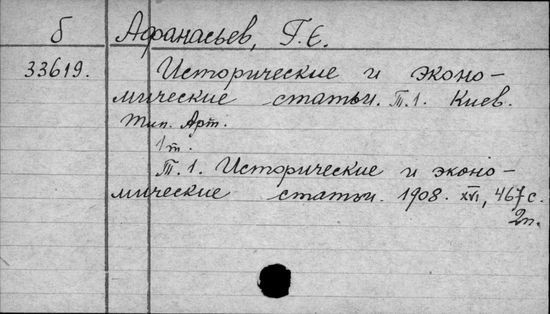 б Афанасьев, Г.Е.
33619. Исторические и эконо-
мические статьи. Т.1. Киев.
Тип. Арт.
1 т.
Т.1. Исторические и эконо-
мические статьи. 1908. XVI, 467 с.
2 п.